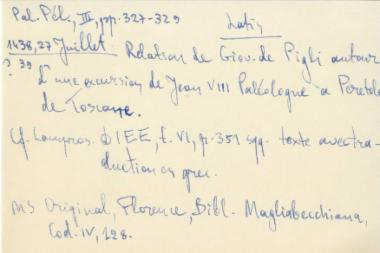 Pal. Pél., III, pp. 327-329
Latin
1438, 27 Juillet: Relation de Giov. de Pigli autour
? 39
d'une excursion de Jean VIII Paléologue a Peretola
de Toscane.
Cf. Lampros. ΔIEE, t. VI, p. 351 sqq. texte avec tra-
duction en grec.
MS Original, Florence, Bibl. Magliabecchiana,
Cod. IV, 128.